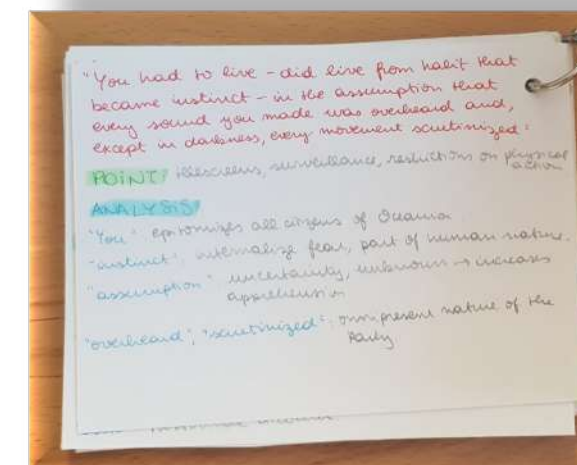 "You had to live - did live from habit that
became instinct - in the assumption that
every sound you made was overheard and,
except in darkness, every movement scutinized."
POINT: telescreens, surveillance, restrictions on physical
action
ANALYSIS
"You": epitomizes all citizens of Oceania
"instinct": internalize fear, part of human nature.
"assumption": uncertainty, unknown → increases
apprehension
"overheard", "scutinized": omnipresent nature of the
Party